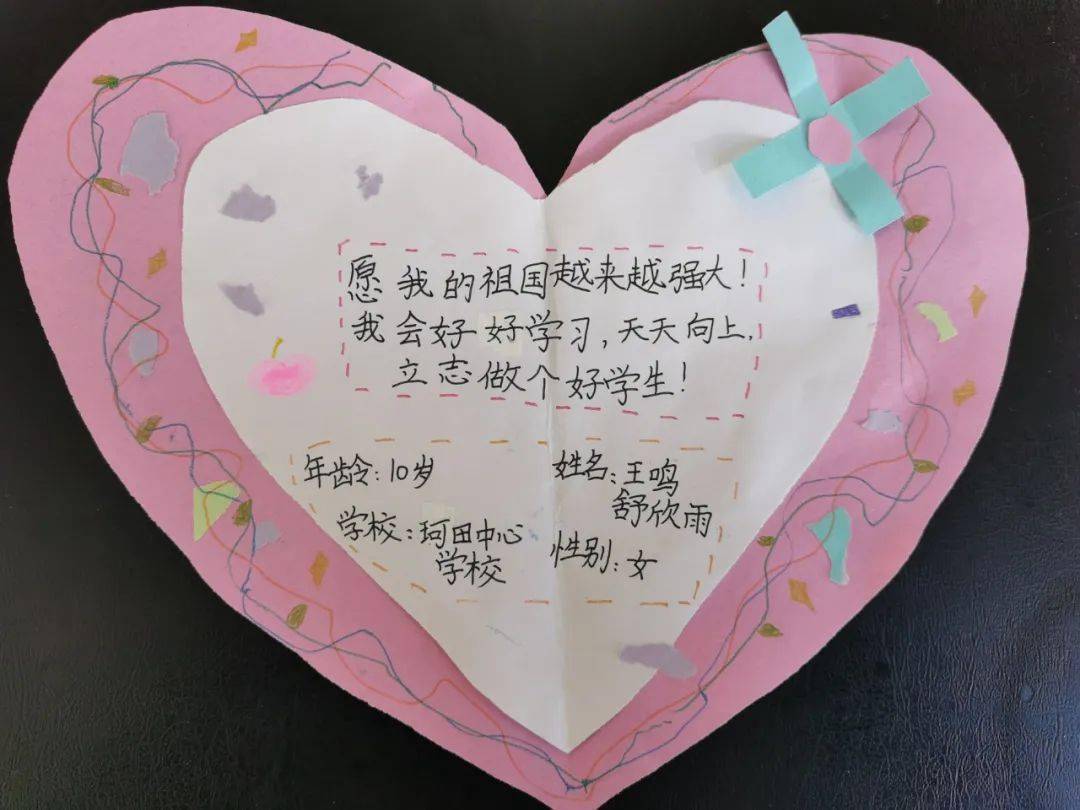 愿我的祖国越来越强大!
我会好好学习,天天向上,
立志做个好学生!
年龄:10岁
姓名:王鸣
舒欣雨
学校:珂田中心
学校
性别:女